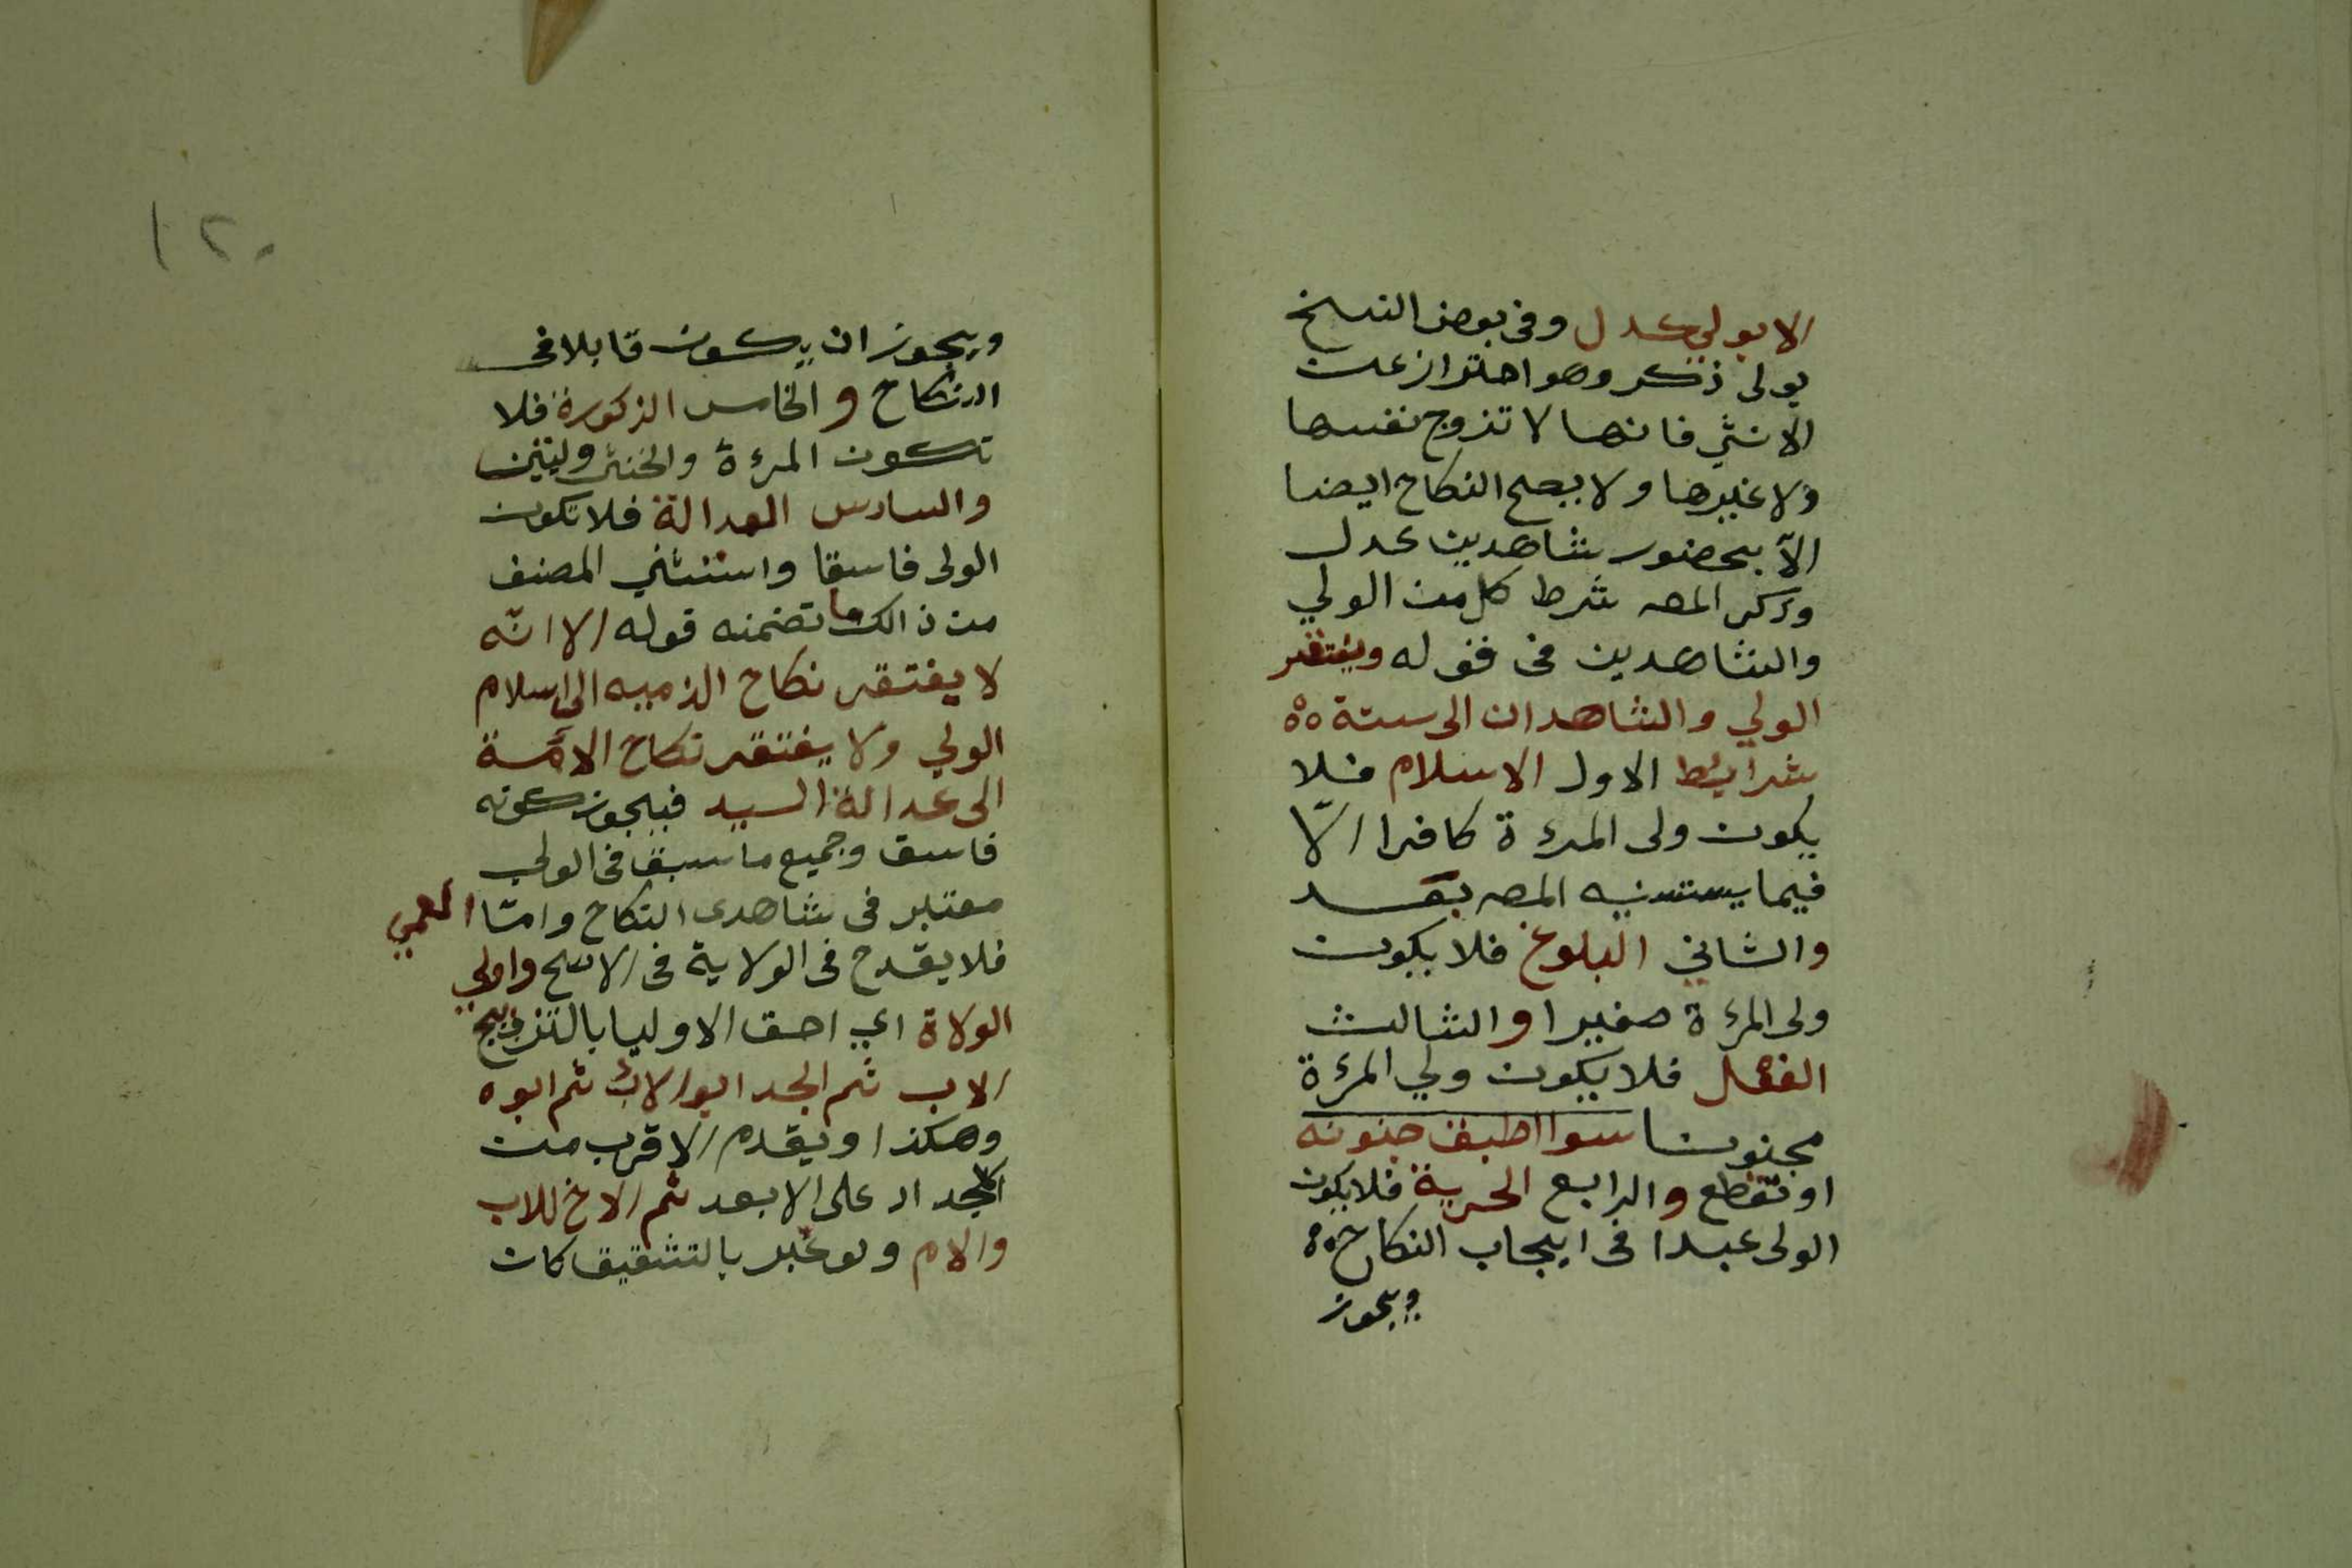 الا بولي عدل وفى بعض النسخ
بولى ذكر وهو احتراز عن
الانثي فانها لا تزوج نفسها
ولا غيرها ولا يصح النكاح ايضا
الاّ بحضور شاهدين عدل
وذكر المصـ شرط كل من الولي
والشاهدين فى قوله ويفتقر
الولي والشاهدان الى ستة ٥٥
شرايط الاول الاسلام فلا
يكون ولى المرءة كافرا الّا
فيما يستسنيه المصـ بعد
والثاني البلوغ فلا يكون
ولى المرءة صغيرا والثالث
العقل فلا يكون ولي المرءة
مجنونا سوا اطبق جنونه
او تقطع والرابع الحرية فلا يكون
الولى عبدا فى ايجاب النكاح ٥٠
ويجوز
١٢٠
ويجوز ان يكون قابلا فى
النكاح والخامس الذكورة فلا
تكون المرءة والخنثى وليتين
والسادس العدالة فلا تكون
الولى فاسقا واستثني المصنف
من ذالك ما تضمنه قوله الا انّه
لا يفتقر نكاح الذميه الى اسلام
الولي ولا يفتقر نكاح الامَة
الى عدالة السيد فيجوز كونه
فاسق وجميع ما سبق فى الولي
معتبر فى شاهدى النكاح وامّا العمي
فلا يقدح فى الولاية فى الاصح واولي
الولاة اي احق الاوليا بالتزويج
الاب ثم الجد ابو الاب ثم ابوه
وهكذا ويقدم الاقرب من
الاجداد على الابعد ثم الاخ للاب
والام ولو عبر بالشقيق كان